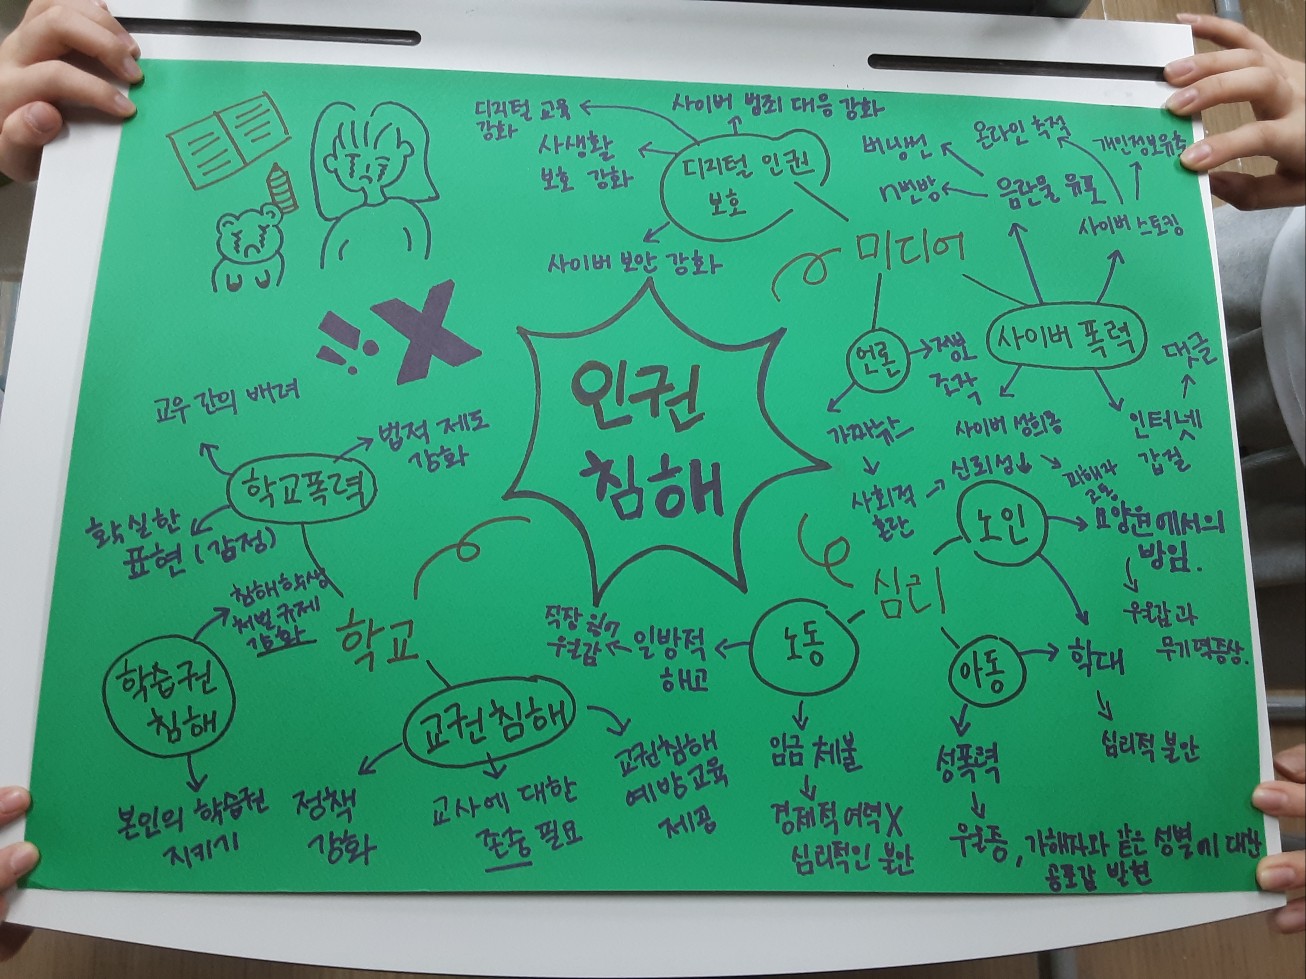 인권
침해
미디어
디지털 인권
보호
디지털 교육
강화
사이버 범죄 대응 강화
사생활
보호 강화
사이버 보안 강화
언론
정보
조작
가짜뉴스
사회적
혼란
신뢰성↓
사이버 폭력
음란물 유포
버닝썬
n번방
사이버 스토킹
온라인 추적
개인정보유출
사이버 성희롱
피해자
고통
인터넷
갑질
댓글
학교
학교폭력
교우 간의 배려
법적 제도
강화
확실한
표현 (감정)
학습권
침해
침해학생
처벌 규제
강화
본인의 학습권
지키기
교권침해
정책
강화
교사에 대한
존중 필요
교권침해
예방교육
제공
심리
노인
요양원에서의
방임.
우울감과
무기력증상.
학대
심리적 불안
아동
성폭력
우울증, 가해자와 같은 성별에 대한
공포감 발현
노동
일방적
해고
직장 잃어
우울감
임금 체불
경제적 여력 X
심리적인 불안
!! X